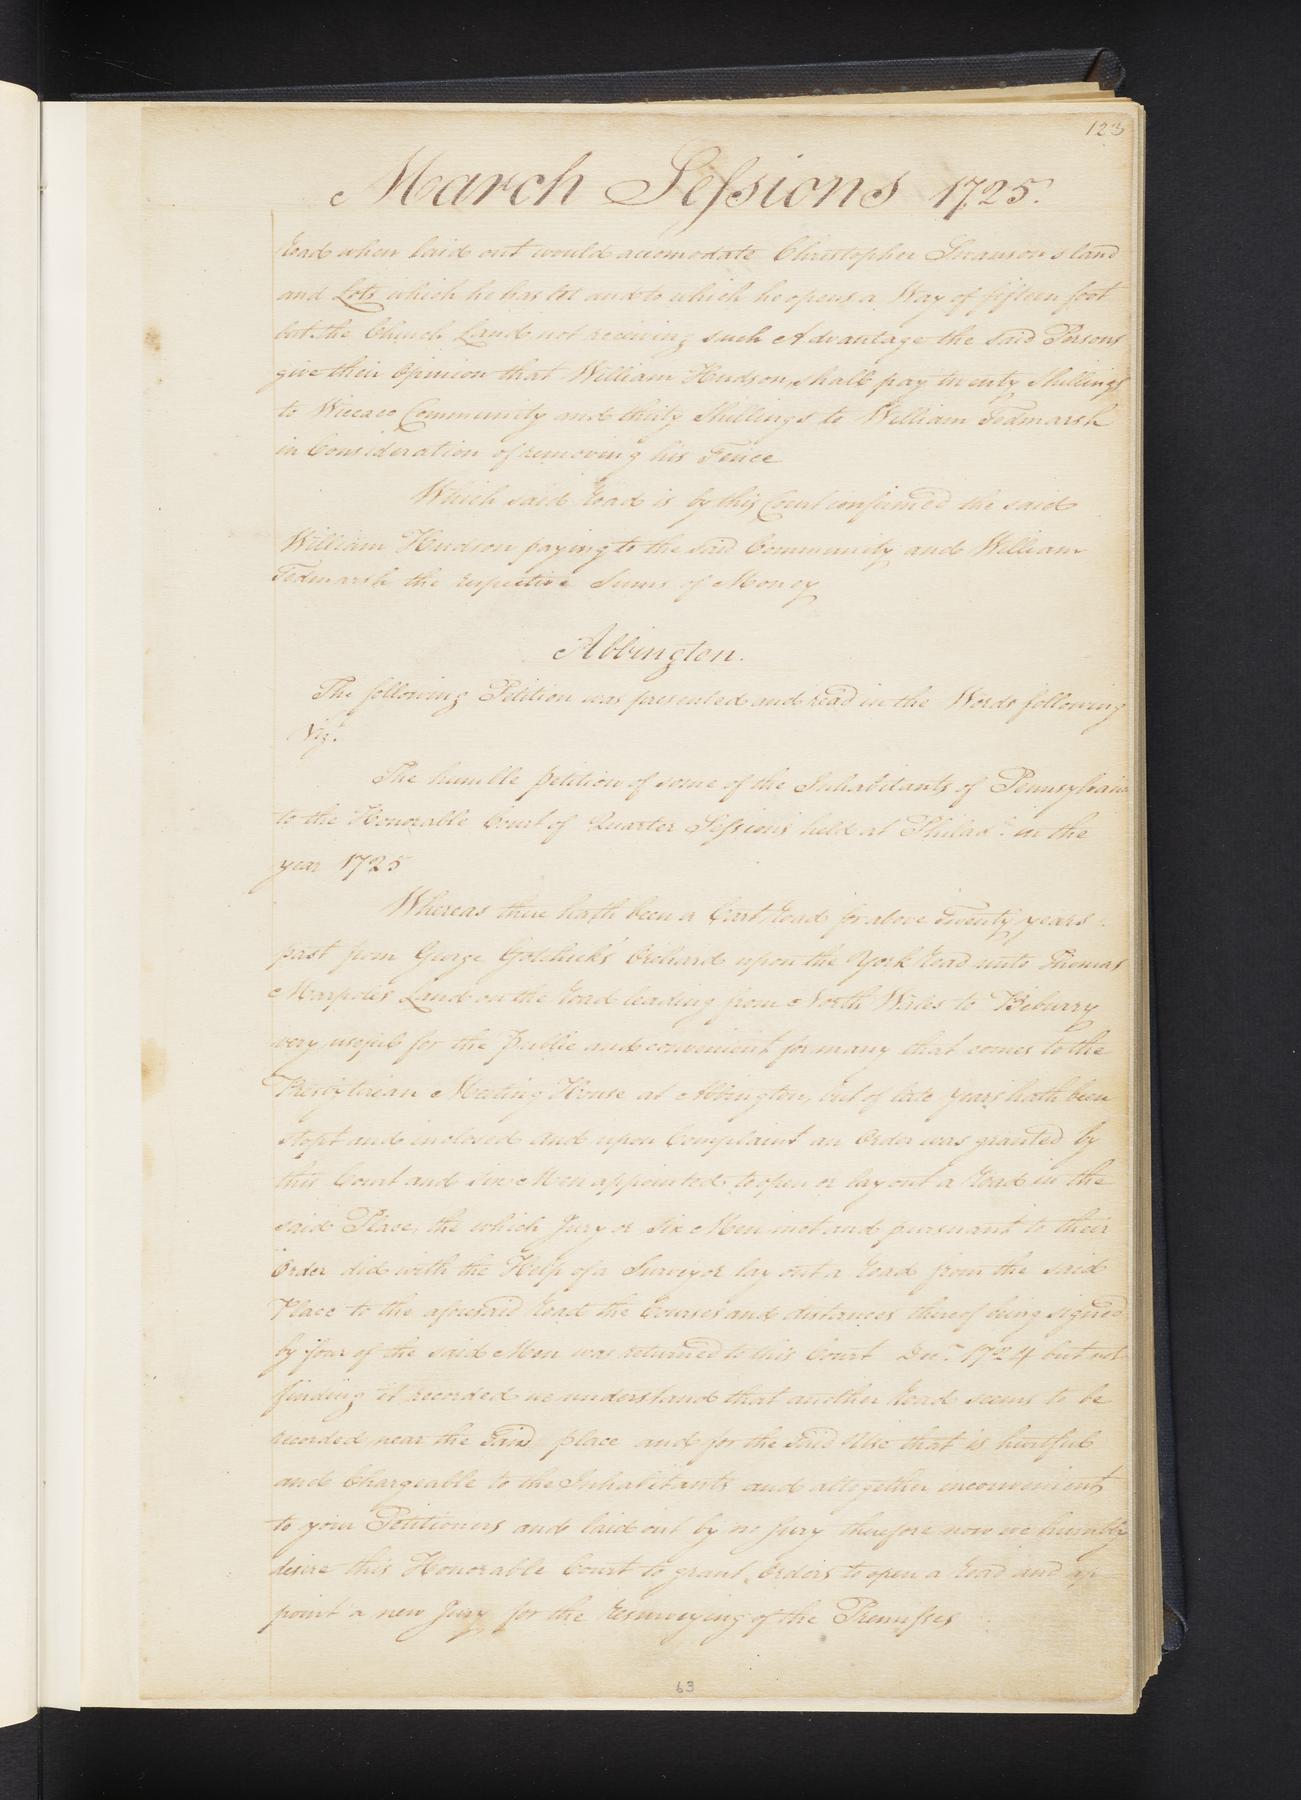 123
March Sessions 1725.
Road when laid out would accomodate Christopher Swanson's land
and Lots which he has let and to which he opens a Way of fifteen foot
but the Church Land not receiving such Advantage the said Persons
give their Opinion that William Hudson, shall pay twenty Shillings
to Wiccaco Community and thirty Shillings to William Tidmarsh
in Consideration of removing his Fence
Which said Road is by this Court confirmed the said
William Hudson paying to the said Community and William
Tidmarsh the respective Sums of Money
Abbington.
The following Petition was presented and read in the Words following
Vizt.
The humble petition of some of the Inhabitants of Pennsylvania
to the Honorable Court of Quarter Sessions held at Philada. in the
year 1725
Whereas there hath been a Cart Road for above Twenty years
past from George Orchard upon the York Road unto Thomas
Land on the Road leading from North Wales to Biburry
very usefull for the Public and convenient for many that comes to the
Presbyterian Meeting House at Abbington, but of late years hath been
stopt and inclosed and upon Complaint an Order was granted by
this Court and Six Men appointed to open or lay out a Road in the
said Place, the which Jury or Six Men met and pursuant to their
Order did with the Help of a Surveyor lay out a Road from the said
Place to the aforesaid Road the Courses and distances thereof being signed
by four of the said Men was returned to this Court Decr. 1724 but not
finding it recorded we understand that another Road seems to be
recorded near the said place and for the said Use that is hurtfull
and Chargeable to the Inhabitants and altogether inconvenient
to your Petitioners and laid out by no Jury therefore now we humbly
desire this Honorable Court to grant Orders to open a Road and ap
point a new Jury for the Resurveying of the Premisses
63